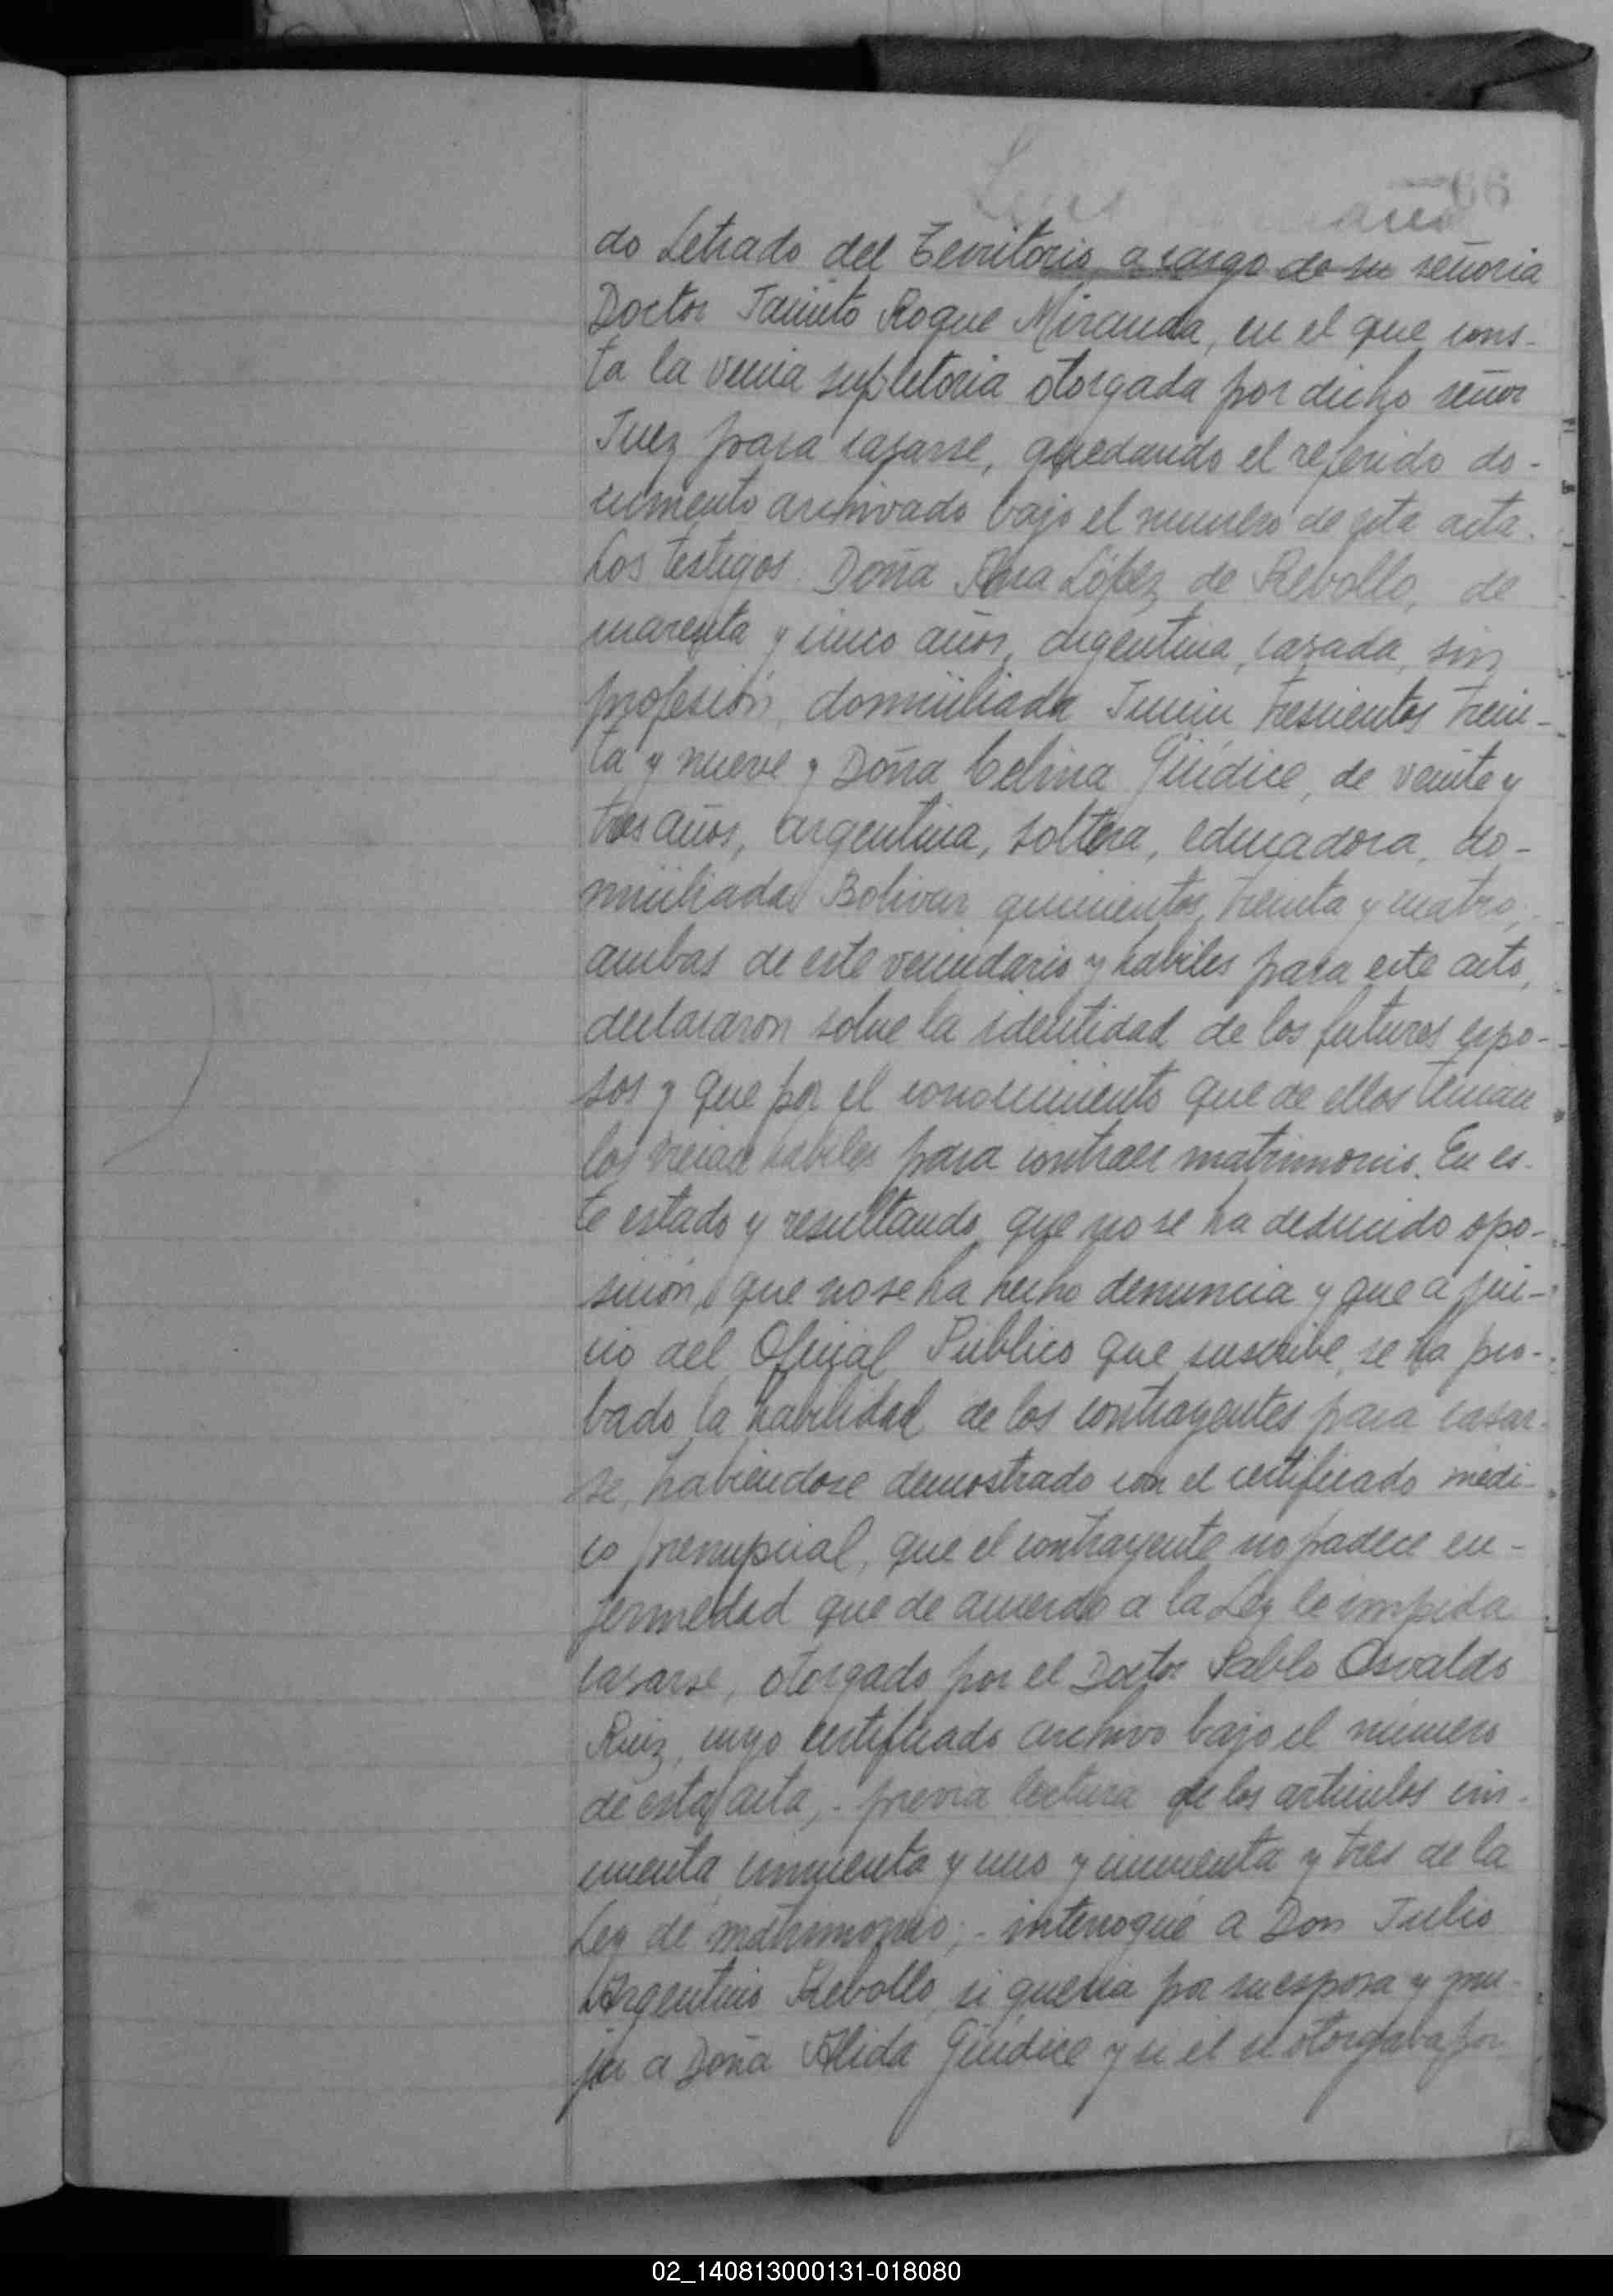 66
do Letrado del Territorio, a cargo de su señoria
Doctor Jacinto Roque Miranda, en el que cons-
ta la venia supletoria otorgada por dicho señor
Juez para casarse, quedando el referido do-
cumento archivado bajo el numero de esta acta.
Los testigos Doña Ana López de Rebollo, de
cuarenta y cinco años, argentina, casada, sin
profesión, domiciliada Junin trescientos trein-
ta y nueve y Doña Celina Giúdice, de veinte y
tres años, argentina, soltera, educadora, do-
miciliada Bolivar quinientos treinta y cuatro,
ambas de este vecindario y habiles para este acto,
declararon sobre la identidad de los futuros espo-
sos y que por el conocimiento que de ellos tenian
los creian habiles para contraer matrimonio. En es-
te estado y resultando que no se ha deducido opo-
sición, que no se ha hecho denuncia y que a jui-
cio del Oficial Público que suscribe, se ha pro-
bado la habilidad de los contrayentes para casar-
se, habiendose demostrado con el certificado médi-
co prenupcial, que el contrayente no padece en-
fermedad que de acuerdo a la Ley le impida
casarse, otorgado por el Doctor Pablo Osvaldo
Ruiz, cuyo certificado archivo bajo el número
de esta acta,- previa lectura de los articulos cin-
cuenta, cincuenta y uno y cincuenta y tres de la
Ley de matrimonio;- interrogué a Don Julio
Argentino Rebollo, si queria por su esposa y mu-
jer a Doña Alida Giúdice y si el se otorgaba por
02_140813000131-018080